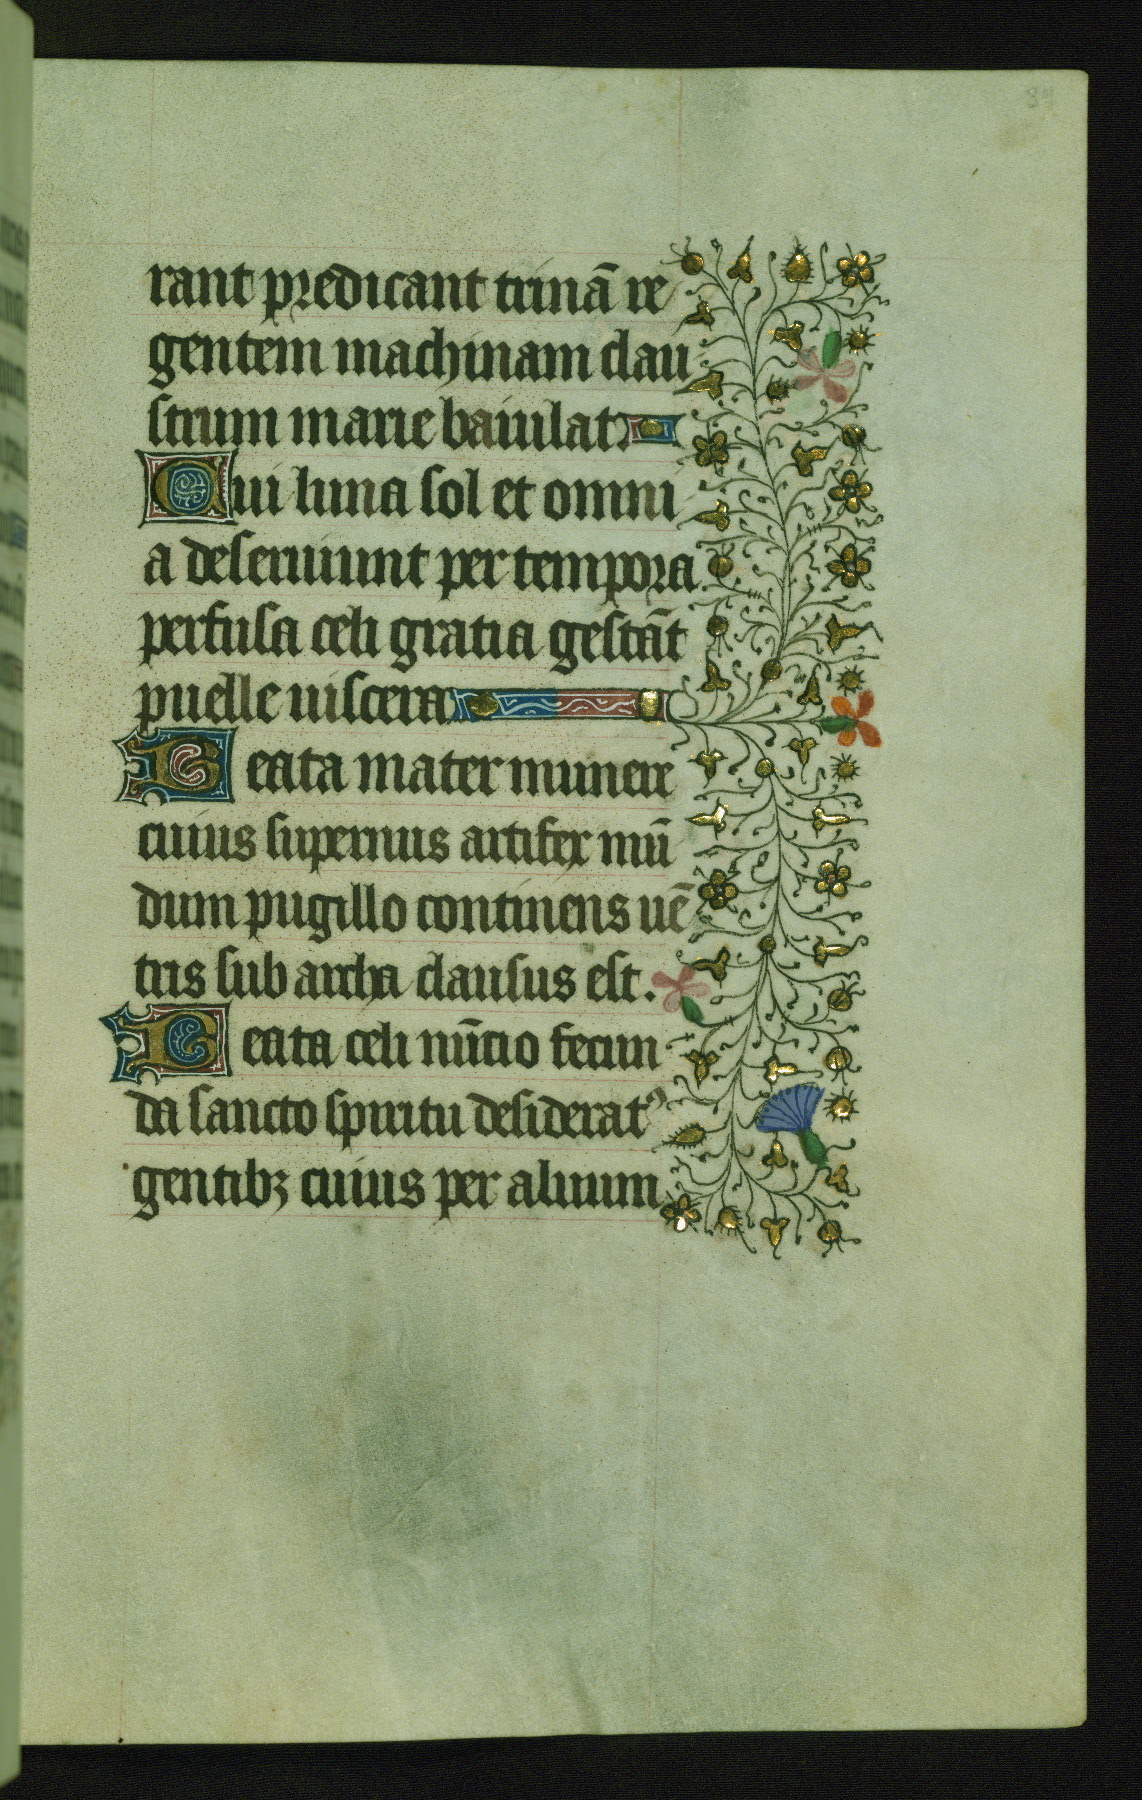 rant predicant trinā re
gentem machinam clau
strum marie baiulat.
Cui luna sol et omni
a deseruiunt per tempora
perfusa celi gratia gestāt
puelle uiscera
Beata mater munere
cuius supernus artifex mū
dum pugillo continens uē
tris sub archa clausus est.
Beata celi nūcio fecun
da sancto spiritu desiderat᾽
gentibꝫ cuius per aluum